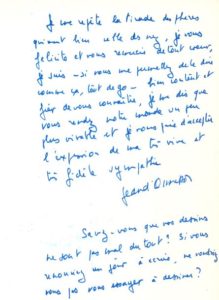 Je vous répète la tirade du
qui ont bien de , je vous
félicite et vous remercie de tout cœur,
je suis – si vous me permettez de le dire
comme ça, tout de go – bien content et
fier de vous connaître, je me dis que
vous rendez notre monde un peu
plus vivable et je vous prie d'accepter
l'expression de ma très vive et
très fidèle sympathie
Jean d'Ormesson
Savez-vous que vos dessins
ne sont pas mal du tout ? Si vous
renoncez un jour à écrire, ne voudriez
vous pas vous essayer à dessiner ?